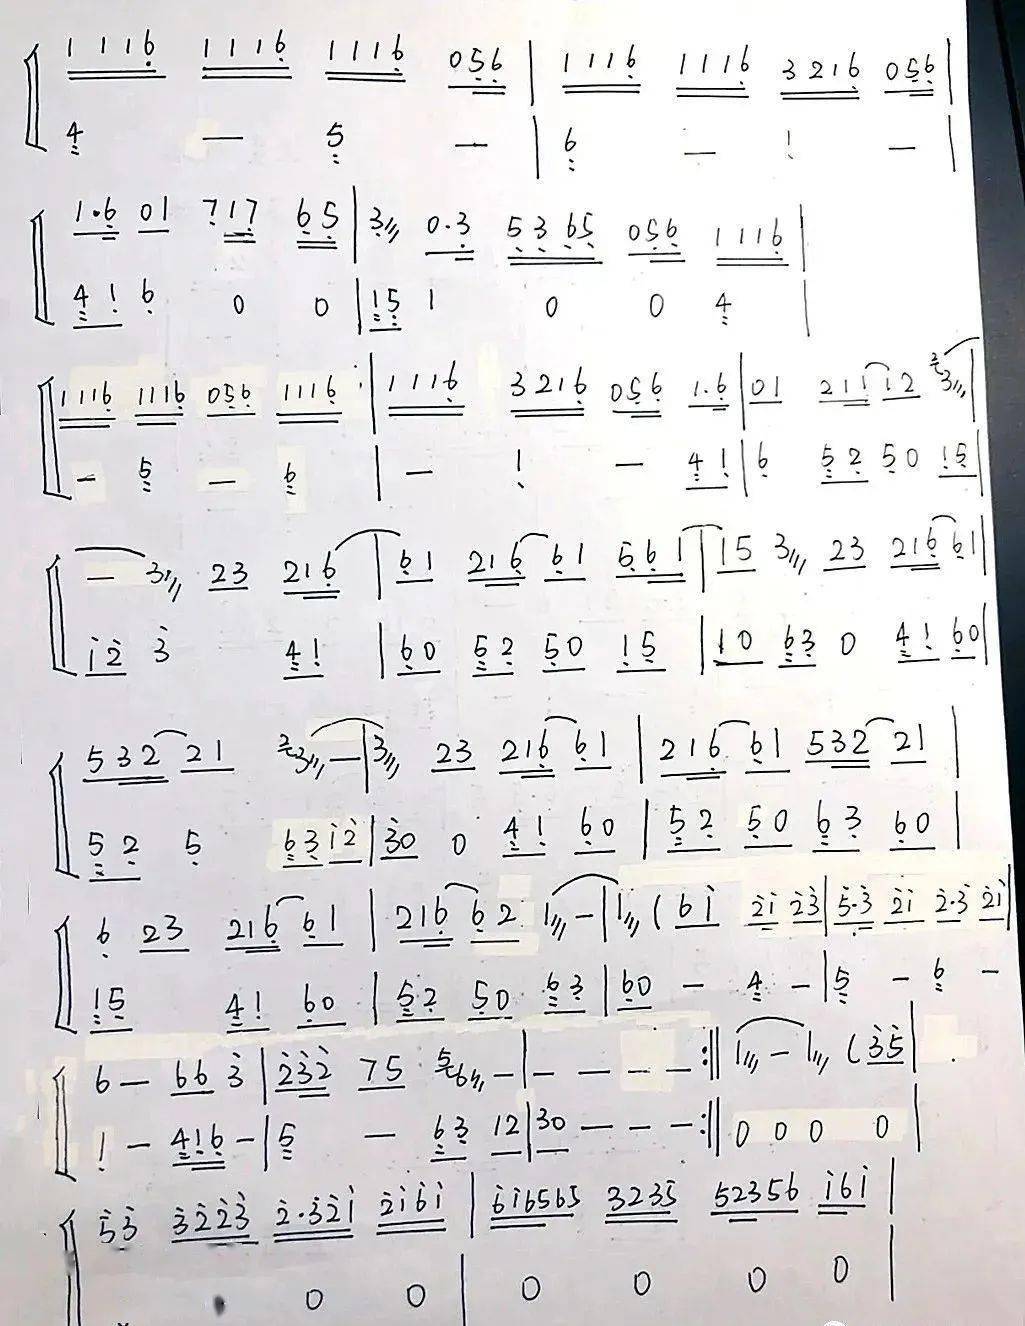 1 1 1 6̣ 1 1 1 6̣ 1 1 1 6̣ 0 5̣ 6̣ | 1 1 1 6̣ 1 1 1 6̣ 3 2 1 6̣ 0 5̣ 6̣ |
4 — 5 — | 6 — 1 — |
1·6 0 1 7 1 7 6 5 | 3 0·3 5 3 6 5 0 5 6 1 1 1 6 |
4 1 6 0 0 | 1 5 1 0 0 4 |
1 1 1 6 1 1 1 6 0 5 6 1 1 1 6 | 1 1 1 6 3 2 1 6 0 5 6 1·6 | 0 1 2 1 1 1 2 3 |
— 5 — 6 | — 1 — 4 1 | 6 5 2 5 0 1 5 |
— 3 2 3 2 1 6 | 6 1 2 1 6 6 1 5 6 1 | 1 5 3 2 3 2 1 6 6 1 |
1̇ 2̇ 3̇ 4 1 | 6 0 5 2 5 0 1 5 | 1 0 6 3 0 4 1 6 0 |
5 3 2 2 1 2 3 — | 3 2 3 2 1 6 6 1 | 2 1 6 6 1 5 3 2 2 1 |
5 2 5 6 3 1̇ 2̇ | 3̇ 0 0 4 1 6 0 | 5 2 5 0 6 3 6 0 |
6 2 3 2 1 6 6 1 | 2 1 6 6 2 1 — | 1 ( 6 1̇ 2̇ 1̇ 2̇ 3̇ | 5̇·3̇ 2̇ 1̇ 2̇·3̇ 2̇ 1̇ |
1 5 4 1 6 0 | 5 2 5 0 6 3 | 6 0 — 4 — | 5 — 6 —
6 — 6 6 3̇ | 2̇ 3̇ 2̇ 7 5 5 6 — | — — — — :‖ 1 — 1 ( 3̇ 5̇ |
1 — 4 1 6 — | 5 — 6 3 1 2 | 3 0 — — — :‖ 0 0 0 0 |
5̇ 3̇ 3̇ 2̇ 2̇ 3̇ 2̇·3̇ 2̇ 1̇ 2̇ 1̇ 6 1̇ | 6 1̇ 6 5 6 5 3 2 3 5 5 2 3 5 6 1̇ 6 1̇ |
0 0 | 0 0 0 0 |